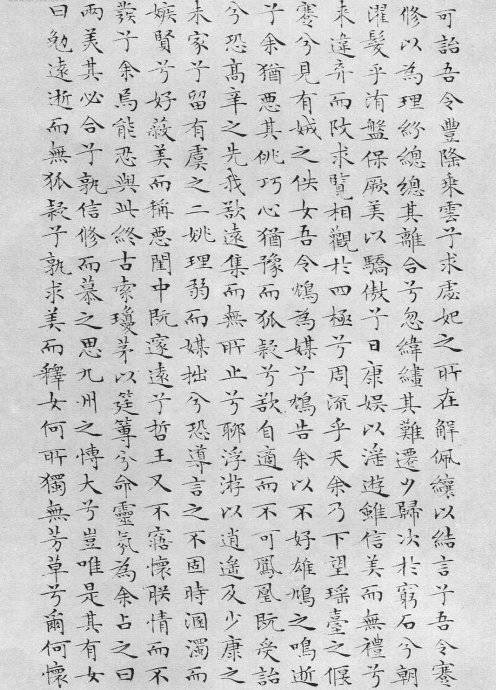 可詒吾令豐隆乗雲兮求虙妃之所在解佩纕以結言兮吾令蹇
修以為理紛總總其離合兮忽緯繣其難遷夕歸次於窮石兮朝
濯髮乎洧盤保厥美以驕傲兮日康娛以淫遊雖信美而無禮兮
来違弃而改求覽相觀於四極兮周流乎天余乃下望瑤臺之偃
蹇兮見有娀之佚女吾令鴆為媒兮鴆告余以不好雄鳩之鳴逝
兮余猶惡其佻巧心猶豫而狐疑兮欲自適而不可鳳凰既受詒
兮恐高辛之先我欲遠集而無所止兮聊浮游以逍遙及少康之
未家兮留有虞之二姚理弱而媒拙兮恐導言之不固時溷濁而
嫉賢兮好蔽美而稱惡閨中既邃遠兮哲王又不寤懷朕情而不
發兮余焉能忍與此終古索瓊茅以筳篿兮命靈氛為余占之曰
兩美其必合兮孰信修而慕之思九州之博大兮豈唯是其有女
曰勉遠逝而無狐疑兮孰求美而釋女何所獨無芳草兮爾何懷